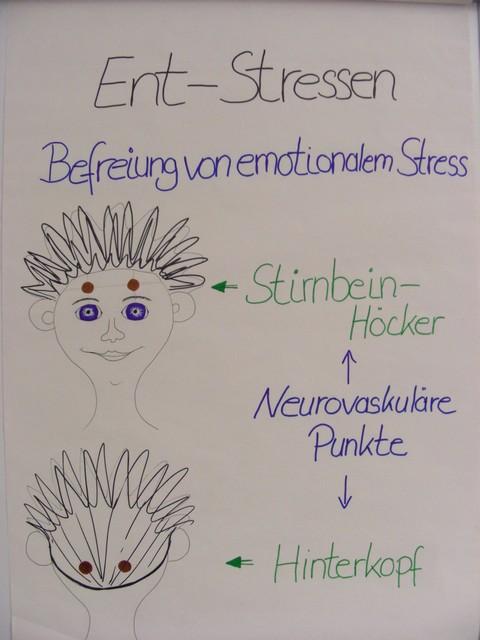 Ent-Stressen
Befreiung von emotionalem Stress
Stirnbein-
Höcker
Neurovaskuläre
Punkte
Hinterkopf